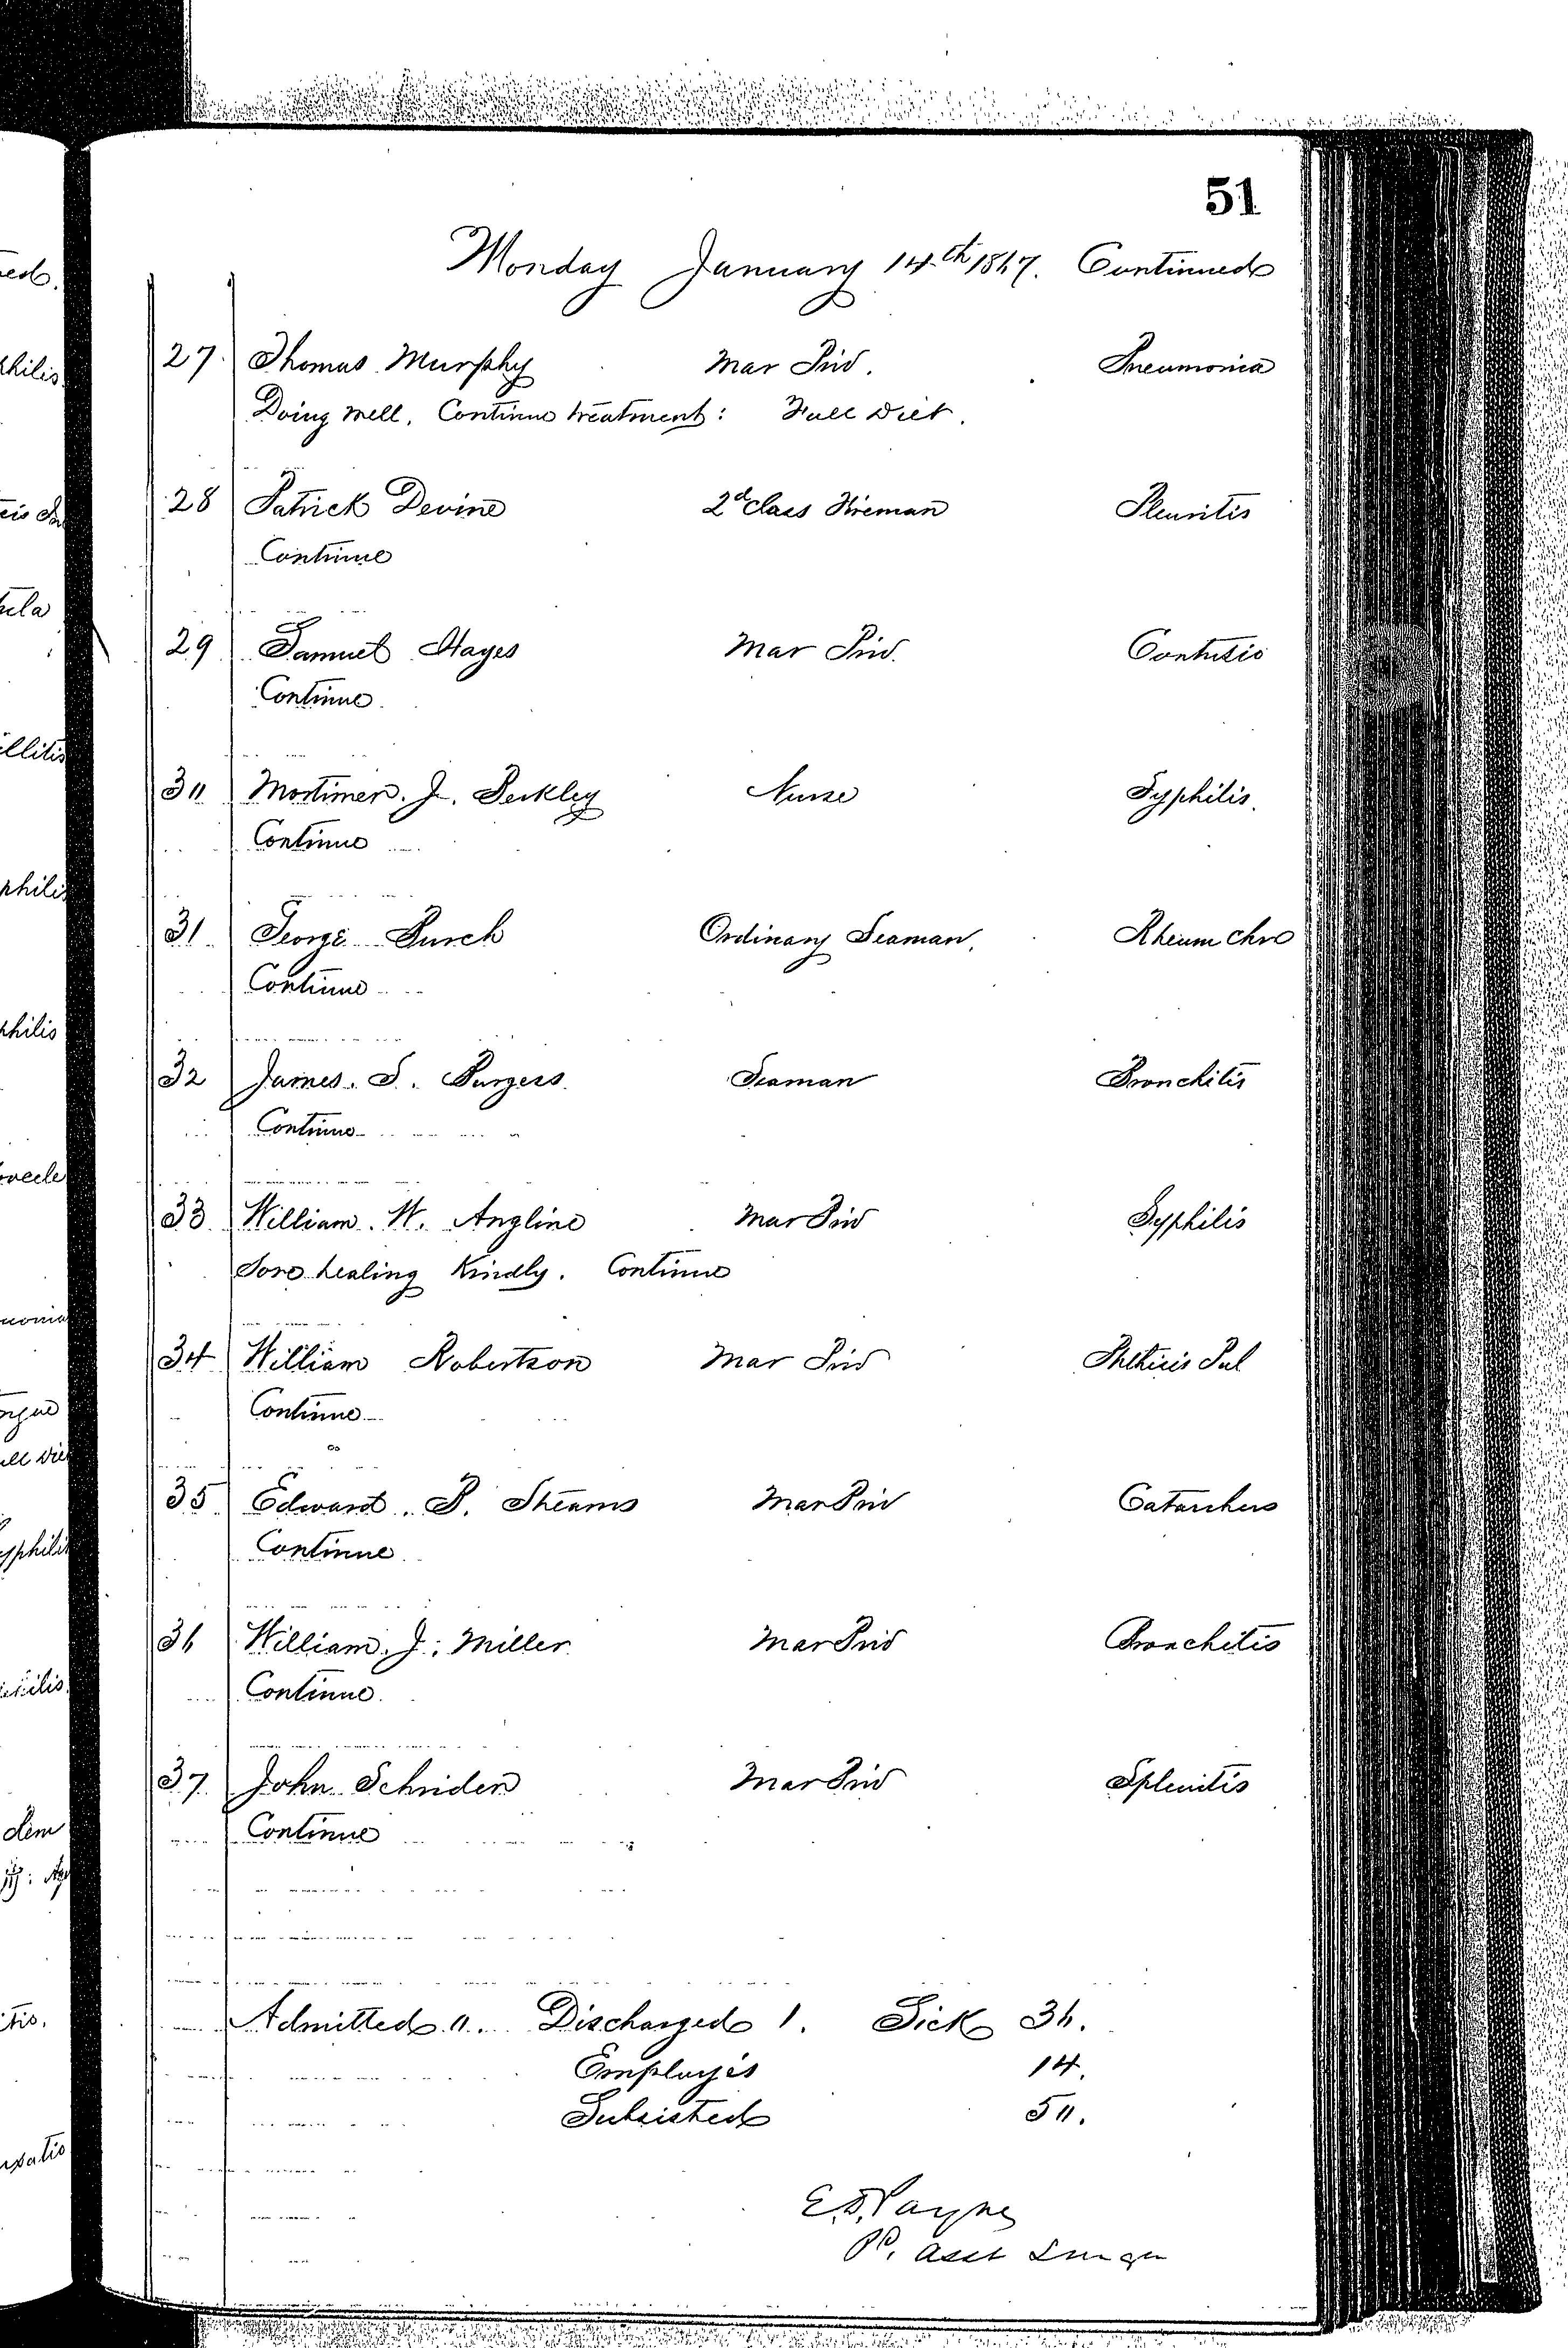 51
Monday January 14th 1867. Continued
27 Thomas Murphy Mar Priv. Pneumonia
Doing well. Continue treatment: Full Diet.
28 Patrick Devine 2d Class Fireman Pleuritis
Continue
29 Samuel Hayes Mar Priv. Contusio
Continue
30 Mortimer. J. Berkley Nurse Syphilis.
Continue
31 George Burch Ordinary Seaman. Rheum Chro
Continue
32 James. S. Burgess Seaman Bronchitis
Continue
33 William. W. Angline Mar Priv Syphilis
Sore healing Kindly. Continue
34 William Robertson Mar Priv Phthisis Pul
Continue
35 Edward. B. Stearns Mar Priv Catarrhus
Continue
36 William. J. Miller Mar Priv Bronchitis
Continue
37 John Schriden Mar Priv Splenitis
Continue
Admitted 0. Discharged 1. Sick 36.
Employés 14.
Subsisted 50.
Payne
Pd. Asst Surgn